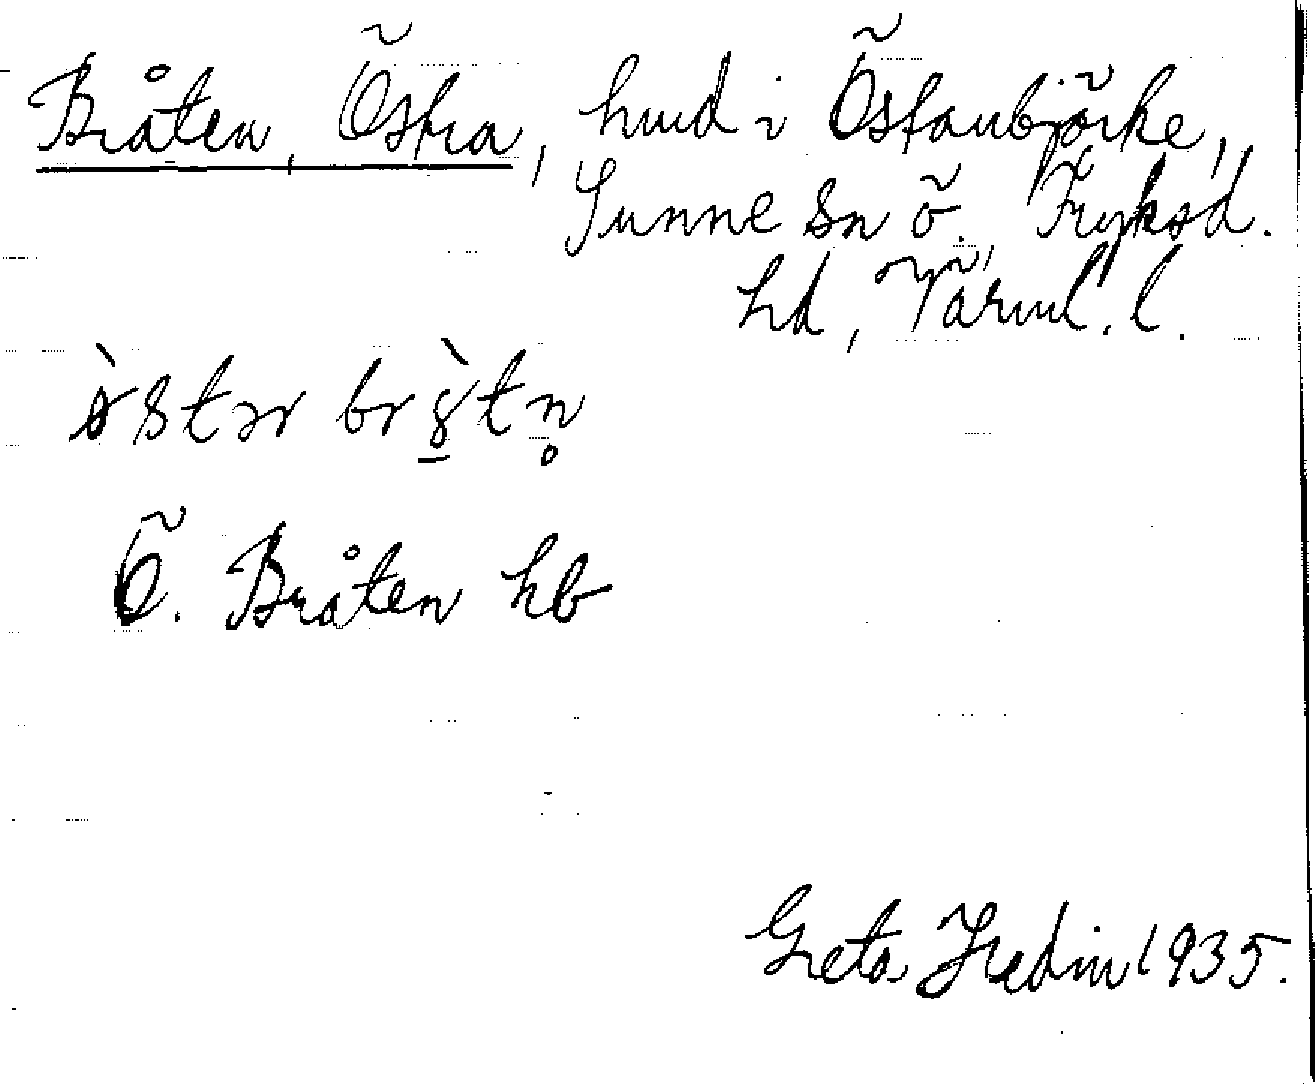 Bråten, Östra, hmd i Östanbjörke,
Sunne sn ö., Fryksd.
hd, Värml. l.
östər br tn̥
Ö. Bråten hb
Greta Hedin 1935.